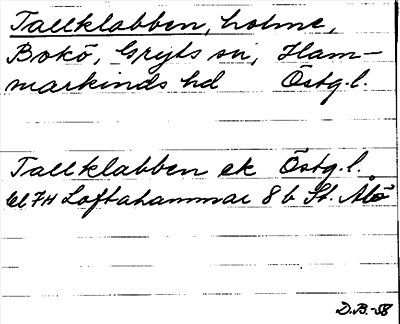 Tallklabben, holme,
Bokö, Gryts sn, Ham-
markinds hd Östg.l.
Tallklabben ek Östg.l.
7H Loftahammar 8 b St. Ålö
D.B.-58